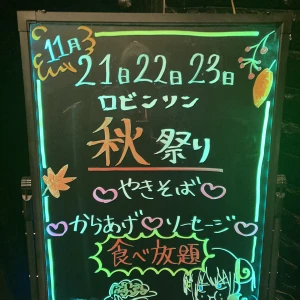 11月
21日22日23日
ロビンソン
秋祭り
やきそば
からあげ♡ソーセージ♡
食べ放題